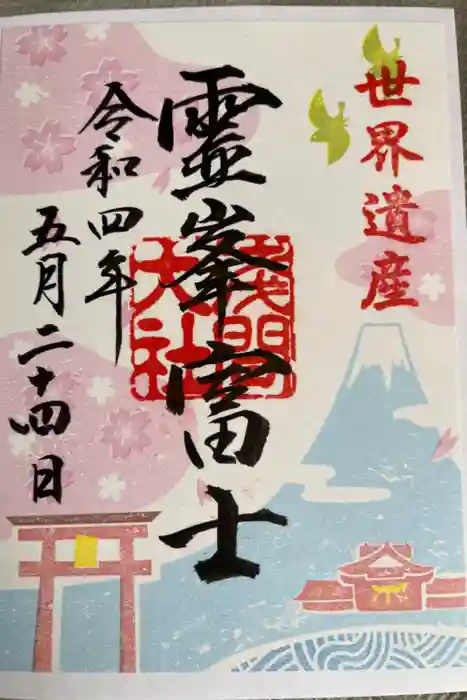 世界遺産
霊峯富士
浅間大社
令和四年
五月二十四日